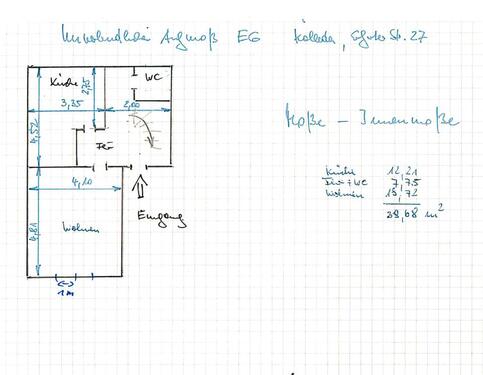 Aufmaß EG Kölleda, Str. 27
Küche
WC
2,75
3,35
2,00
4,52
Flur
4,10
Maße – Innenmaße
Küche 12,21
Flur + WC 7,75
Wohnen 18,72
38,68 m²
Eingang
4,81
Wohnen
1m